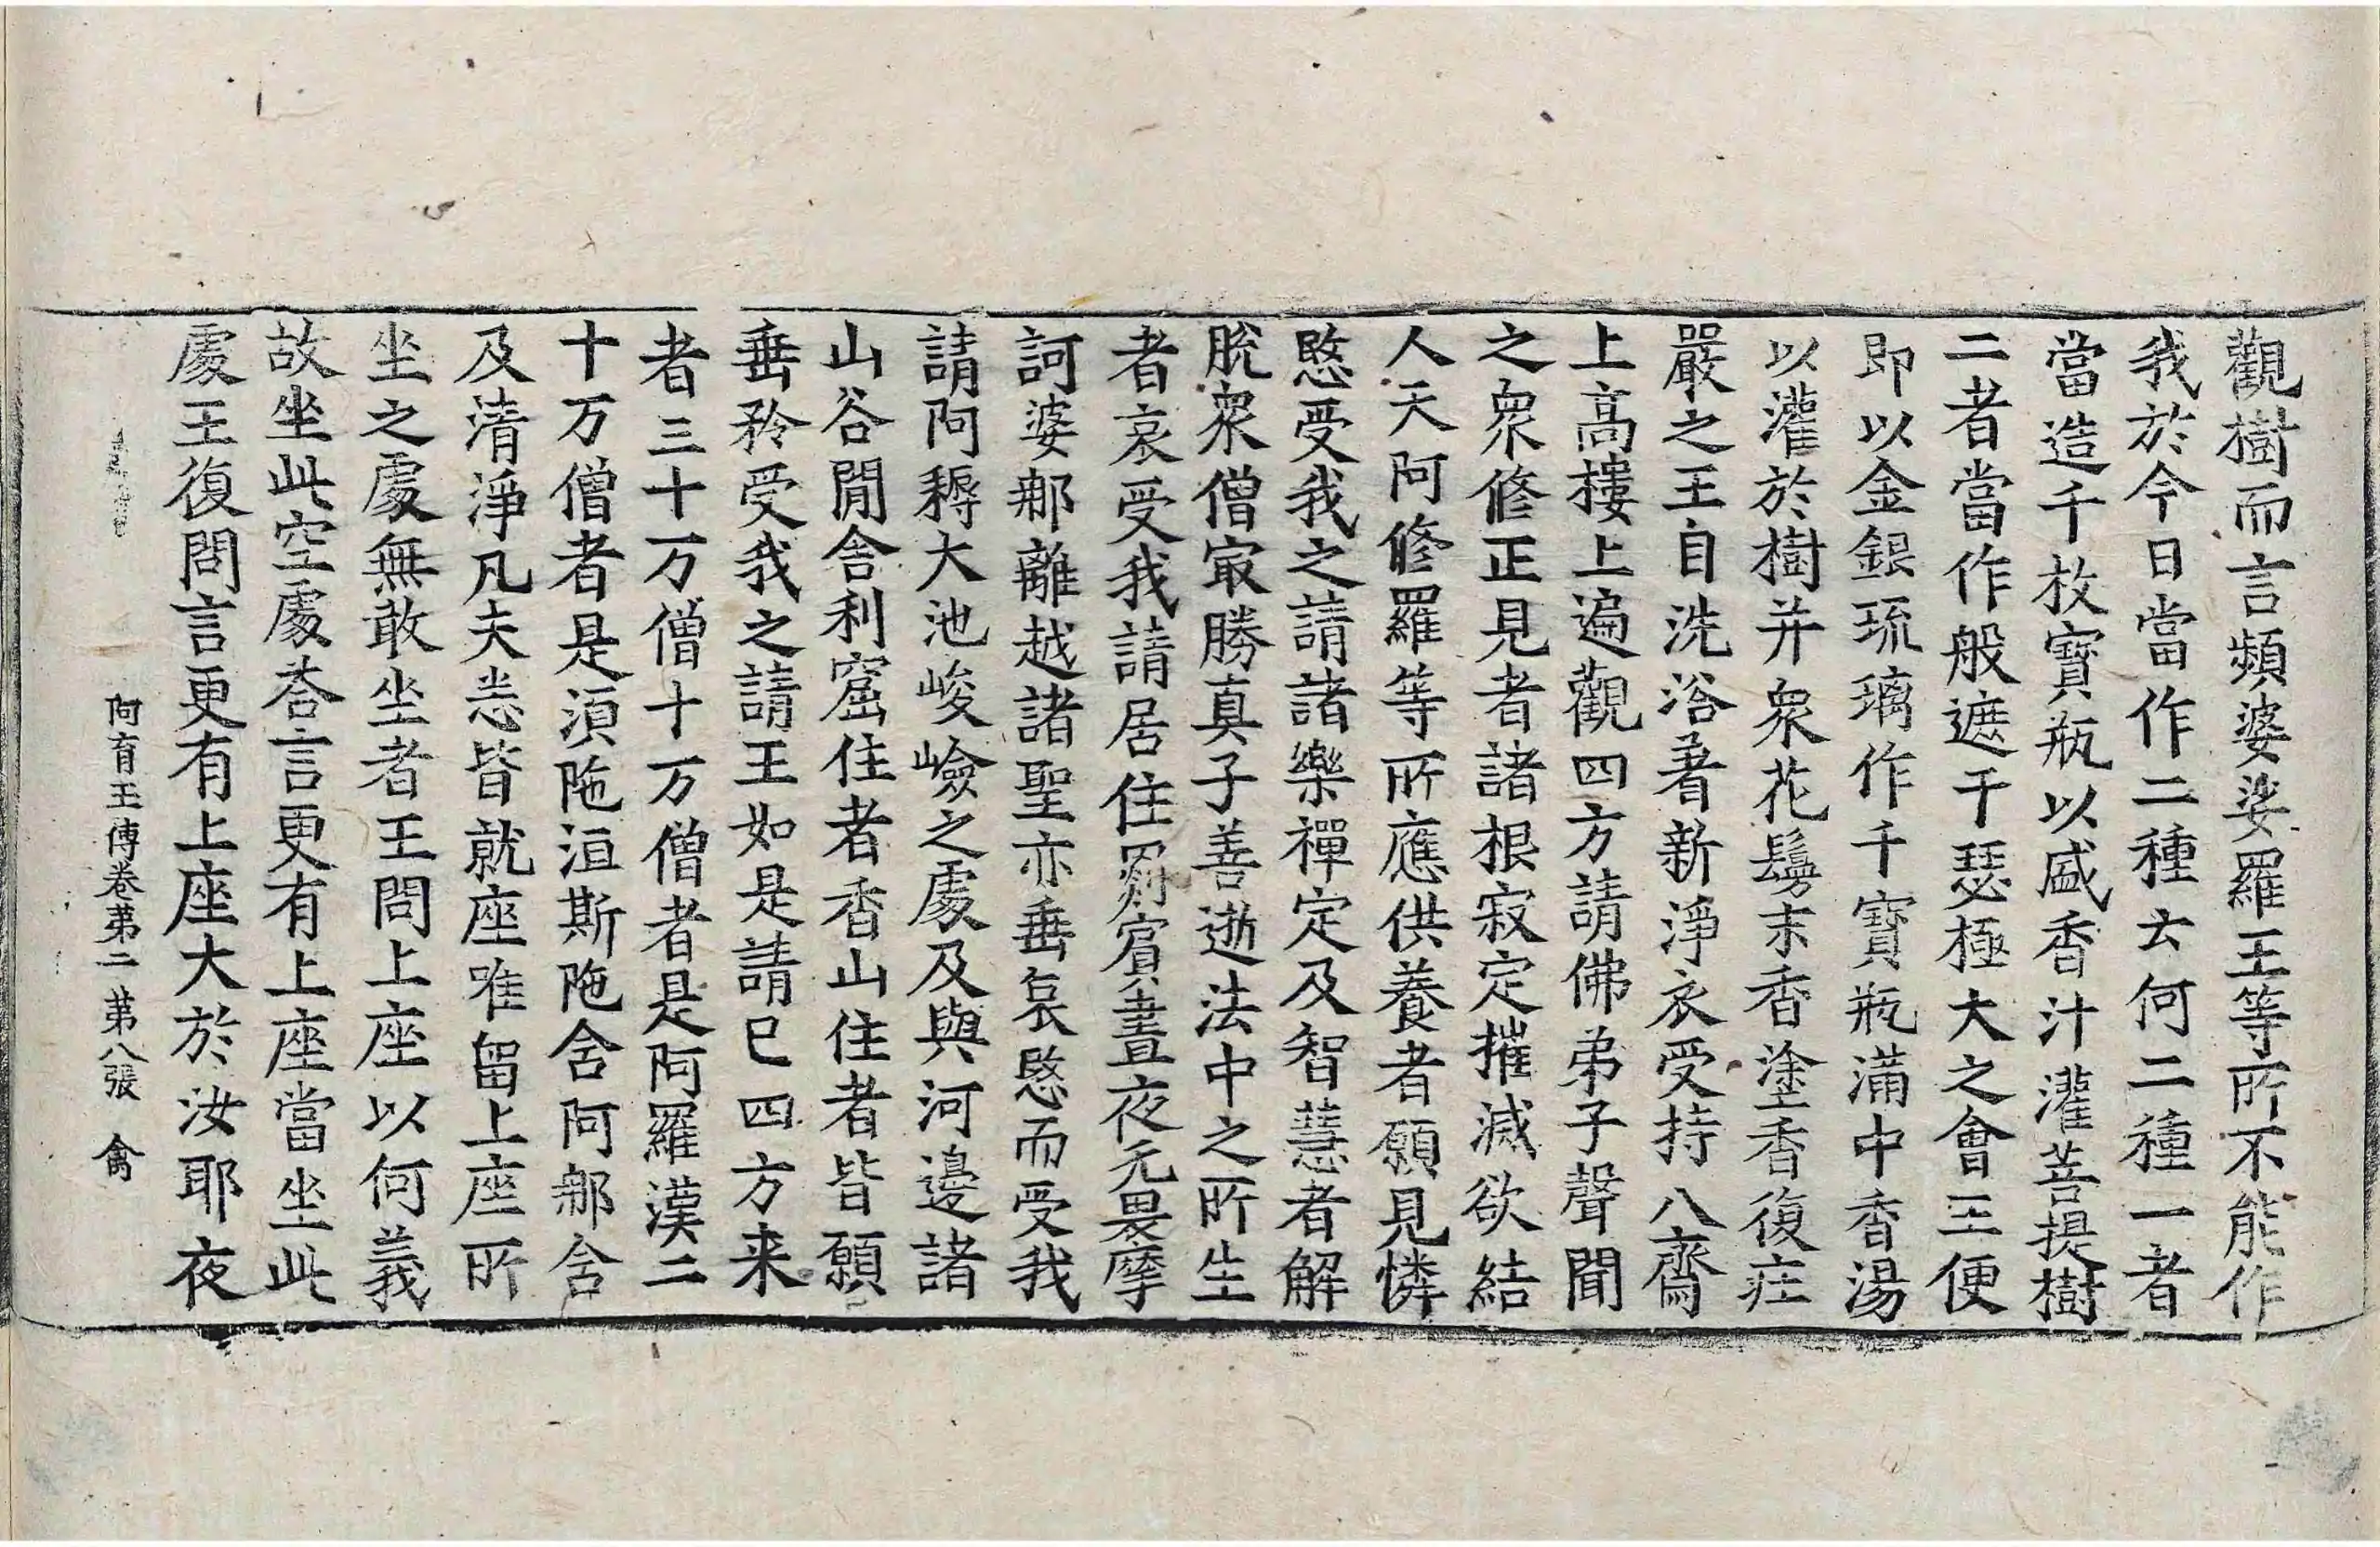 觀樹而言頻婆娑羅王等所不能作
我於今日當作二種云何二種一者
當造千枚寶瓶以盛香汁灌菩提樹
二者當作般遮于瑟極大之會王便
即以金銀琉璃作千寶瓶滿中香湯
以灌於樹并衆花鬘末香塗香復庄
嚴之王自洗浴著新淨衣受持八齋
上高樓上遍觀四方請佛弟子聲聞
之衆修正見者諸根寂定摧滅欲結
人天阿修羅等所應供養者願見憐
愍受我之請諸樂禪定及智慧者解
脫衆僧冣勝真子善逝法中之所生
者哀受我請居住罽賓晝夜无畏摩
訶婆那離越諸聖亦垂哀愍而受我
請阿耨大池峻嶮之處及與河邊諸
山谷閒舍利窟住者香山住者皆願
垂矜受我之請王如是請已四方来
者三十万僧十万僧者是阿羅漢二
十万僧者是湏陁洹斯陁含阿那含
及清淨凡夫悉皆就座唯留上座所
坐之處無敢坐者王問上座以何義
故坐此空處荅言更有上座當坐此
處王復問言更有上座大於汝耶夜
阿育王傳卷第二 第八張 禽